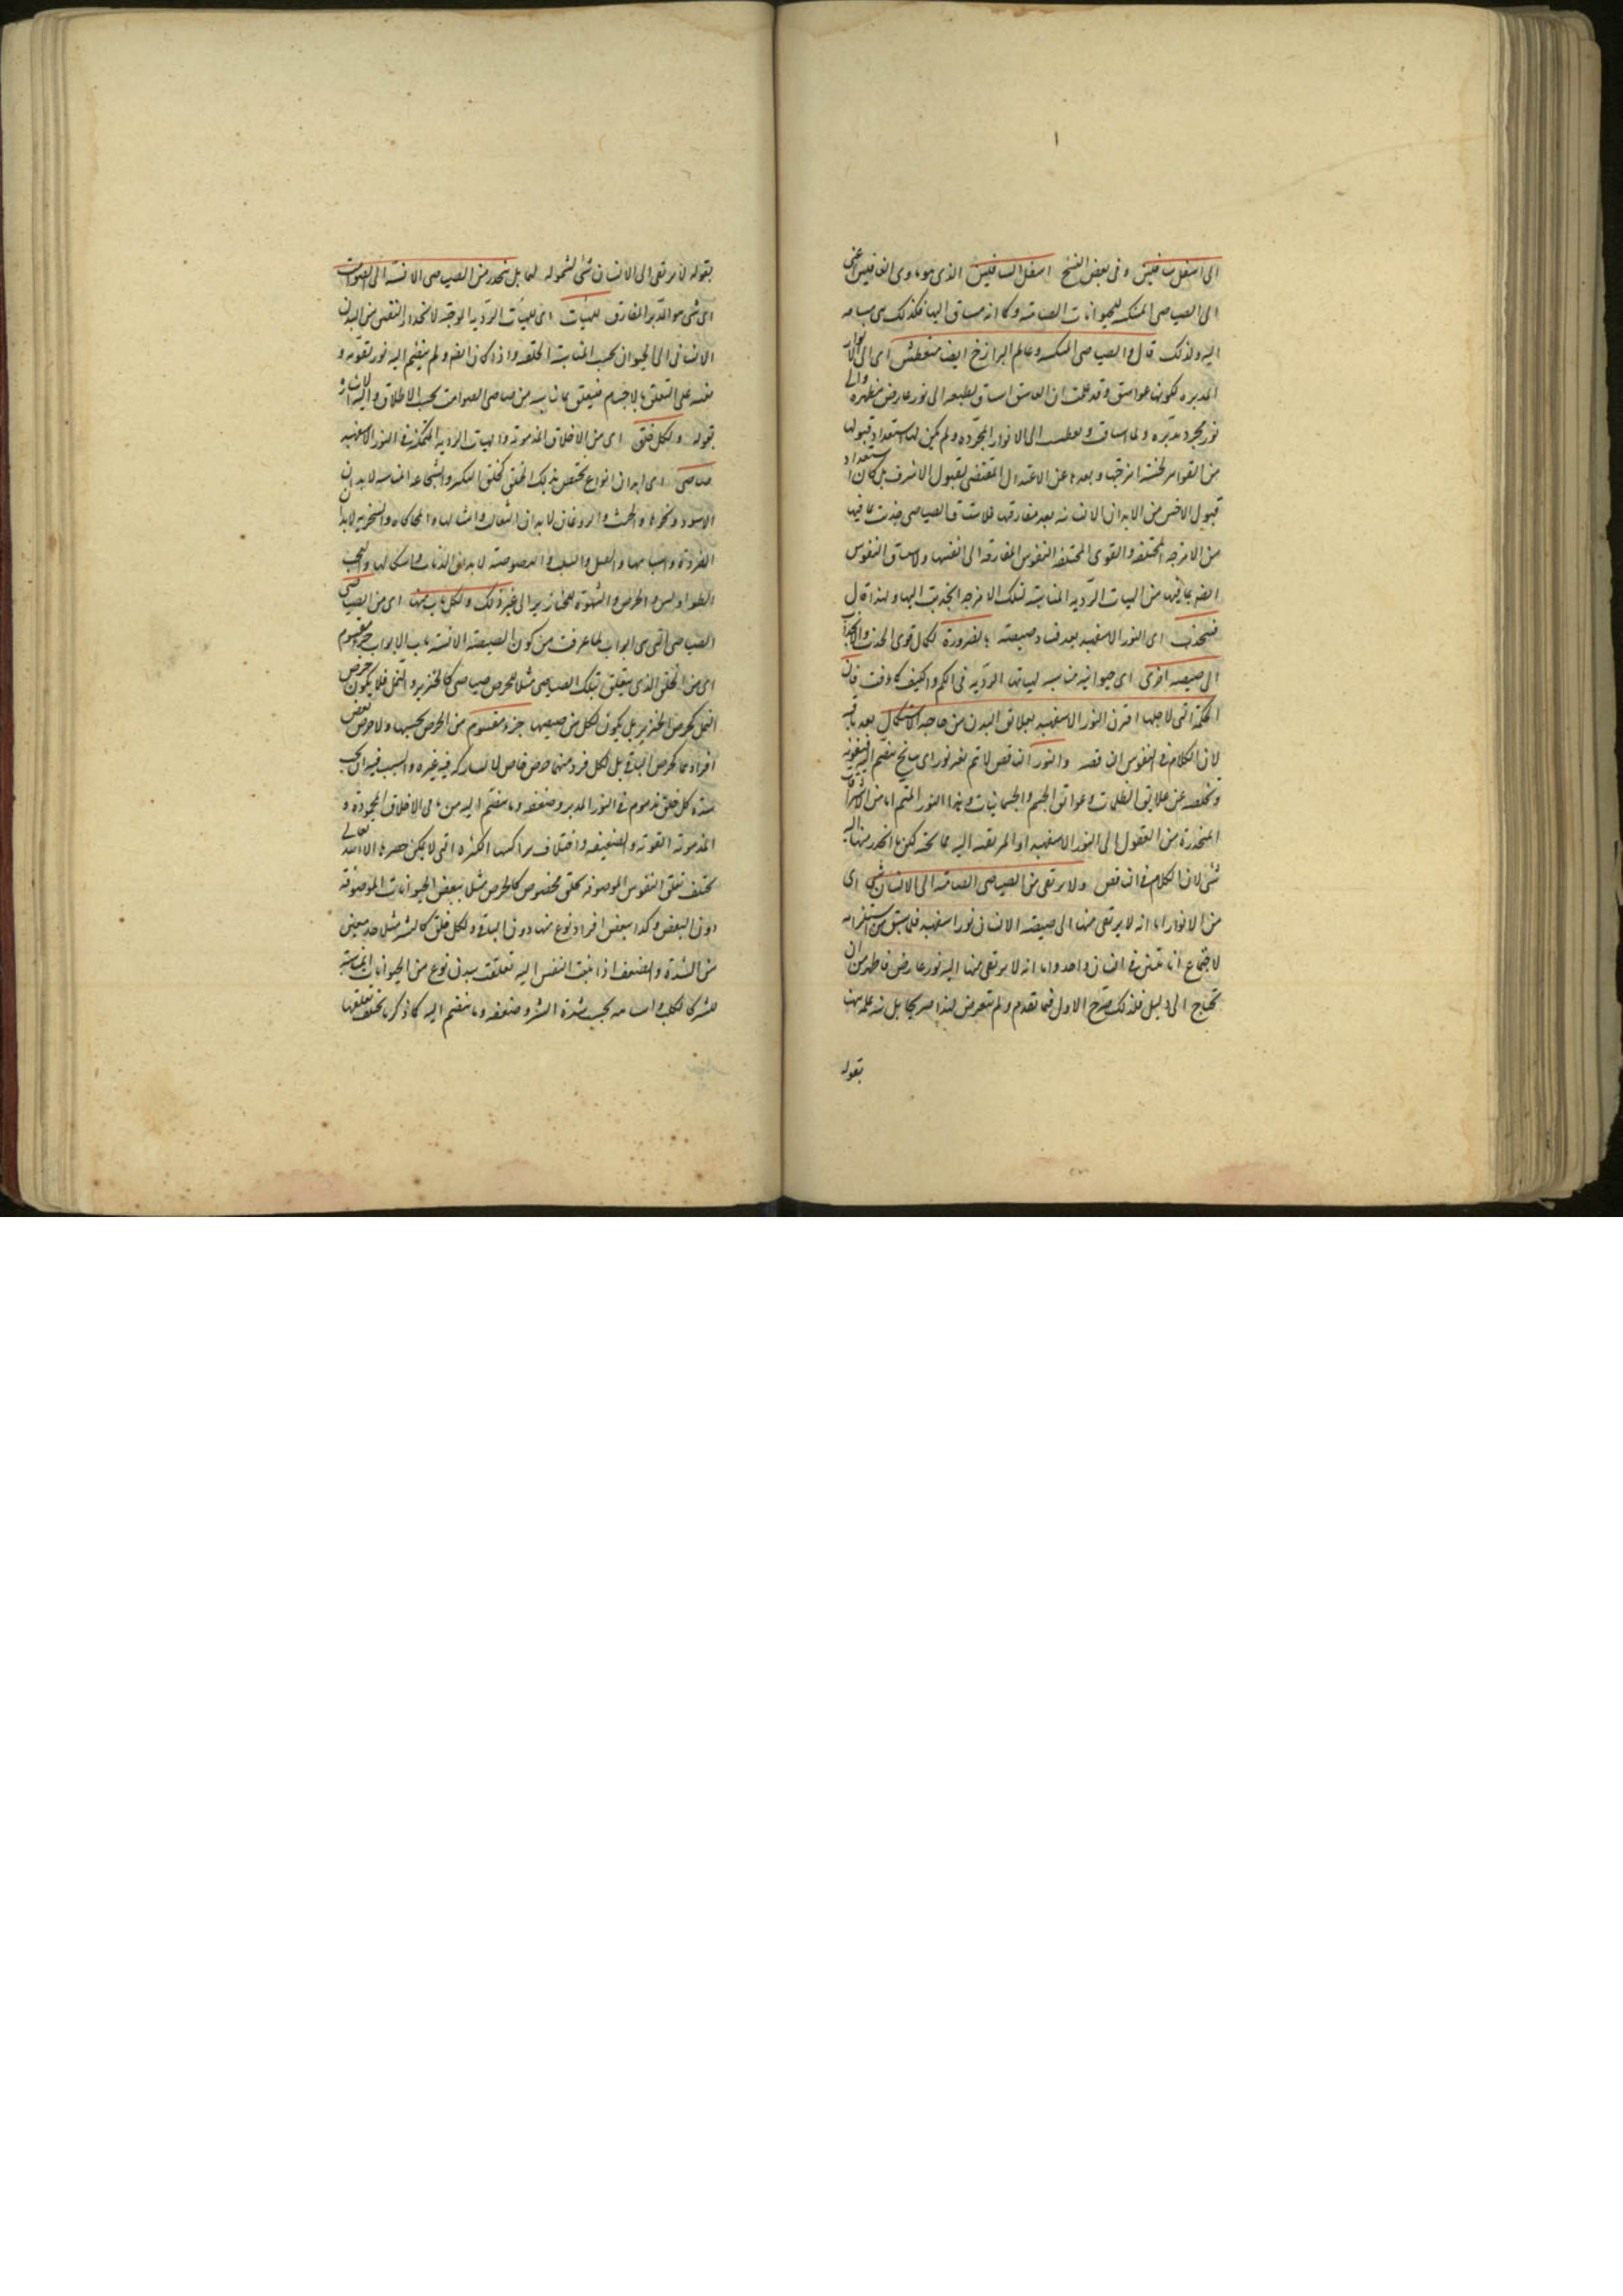 الى اسفل سافلين وفى بعض النسخ اسفل السافلين الذى هو ماوى الغافلين اعنى
الى الصياصى المنتكسة للحيوانات الصامتة وكما انه مشتاق اليها فكذلك هى مشتاقة
اليه ولذلك قال والصياصى المنتكسة وعالم البرازخ ايضا متعطش اى الى الانوار
المدبره لكونها غواسق وقد علمت ان الغاسق اشتاق بطبعه الى نور عارض مظهره والى
نور مجرد يدبره ولما اشتاقت وتعطشت الى الانوار المجرده ولم يكن لها استعداد قبولها
من القواهر لخسة امزجتها وبعدها عن الاعتدال المقتضى لقبول الاشرف بل كان استعداد
قبول الاخس من الابدان الانسانيه بعد مفارقتها فلاشتياق الصياصى جذبت بما فيها
من الامزجه المختلفه والقوى المختلفه النفوس المفارقه الى انفسها ولاشتياق النفوس
ايضا بما فيها من الهيات الرديه المناسبة لتلك الامزجه انجذبت اليها ولهذا قال
فينجذب اى النور الاسفهبد بعد فساد صيصته بالضرورة لكمال قوى الجذب والانجذاب
الى صيصيه اخرى اى حيوانيه مناسبه لهياتها الرديه فى الكم والكيف كما عرفت فان
الحكمة التى لاجلها اقترن النور الاسفهبد بعلائق البدن من حاجة الاستكمال بعد باقية
لان الكلام فى النفوس الناقصه والنور الناقص لا يتم بغير نور اى سانح ينضم اليه فيقويه
ويخلصه عن علايق الظلمات وعوائق الجسم والجسمانيات وهذا النور المتمم اما من الاشراقات
المنحدرة من العقول الى النور الاسفهبد او المرتقية اليه مما تحته لكن ما انحدر منها اليه
شئ لان الكلام فى الناقص ولا يرتقى من الصياصى الصامتة الى الانسان شئ اى
من الانوار اما انه لا يرتقى منها الى صيصته الانسان نور اسفهبد فلما سبق من استلزامه
لاجتماع انائيتين فى انسان واحد واما انه لا يرتقى منها اليه نور عارض فاظهر من ان
يحتاج الى دليل فلذلك صرح الاول فيما تقدم ولم يتعرض لهذا صريحا بل نبه عليه هنا
بقوله
بقوله لا يرتقى الى الانسان شئ لشموله لهما بل ينحدر من الصياصى الانسية الى الصوامت
اى شئ هو المدبر المفارق للهيئات اى للهيئات الرديه الموجبة لانحدار النفس من البدن
الانسانى الى الحيوان بحسب المناسبة الخلقيه واذا كان ناقصا ولم ينضم اليه نور يقويه و
نفسه على التعلق بالاجسام فيتعلق بما يناسبه من صياصى الصوامت بحسب الاخلاق والهيئات واليه اشار
بقوله ولكل خلق اى من الاخلاق المذمومة والهيات الرديه المتمكنة فى النور الاسفهبد
صياصى اى ابدان انواع تختص بذلك الخلق كخلق التكبر والشجاعة المناسبة لابدان
الاسود ونحوها والخبث والروغان لابدان الثعالب وامثالها والمحاكاه والسخريه لابدان
القردة واشباهها والسلب واللصوصية لابدان الذئاب واشكالها والعجب
للطواويس والحرص والشهوة للخنازير الى غير ذلك ولكل باب منها اى من الصياصى
الصياصى التى هى ابواب لما عرفت من كون الصيصة الانسية باب الابواب جزء مقسوم
اى من الخلق الذى يتعلق بتلك الصياصى مثلا للحرص صياصى كالخنزير والنمل فلا يكون حرص
النمل كحرص الخنزير بل يكون لكل من صيصيتها جزء مقسوم من الحرص بحسبها ولا حرص بعض
افرادها كحرص الباقى بل لكل فرد منها حرص خاص لا يشاركه فيه غيره والسبب فيه ان بحسب
شدة كل خلق مذموم فى النور المدبر وضعفه وما ينضم اليه من باقى الاخلاق المحمودة و
المذمومة القوية والضعيفه واختلاف تراكيبها الكثيره التى لا يمكن حصرها الا لله تعالى
يختلف تعلق النفوس الموصوفه بخلق مخصوص كالحرص مثلا ببعض الحيوانات الموصوفة
دون البعض وكذا ببعض افراد نوع منها دون الباقى ولكل خلق كالشره مثلا حد معين
من الشدة والضعف اذا بلغت النفس اليه تعلقت ببدن نوع من الحيوانات المناسبة
للشره كالكلب وامثاله بحسب شدة الشره وضعفه وما ينضم اليه كما ذكرنا يختلف تعلقها